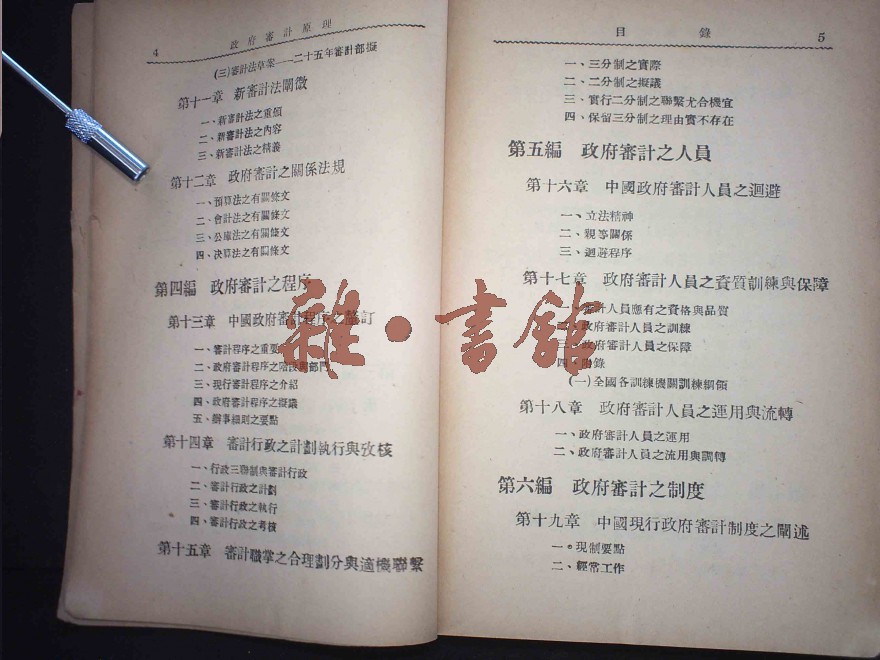 4 政府審計原理
(三)審計法草案——二十五年審計部擬
第十一章 新審計法闡微
一、新審計法之重頒
二、新審計法之內容
三、新審計法之精義
第十二章 政府審計之關係法規
一、預算法之有關條文
二、會計法之有關條文
三、公庫法之有關條文
四、決算法之有關條文
第四編 政府審計之程序
第十三章 中國政府審計程序之釐訂
一、審計程序之重要
二、政府審計程序之階段與部門
三、現行審計程序之介紹
四、政府審計程序之擬議
五、辦事細則之要點
第十四章 審計行政之計劃執行與攷核
一、行政三聯制與審計行政
二、審計行政之計劃
三、審計行政之執行
四、審計行政之考核
第十五章 審計職掌之合理劃分與適機聯繫
目錄 5
一、三分制之實際
二、二分制之擬議
三、實行二分制之聯繫尤合機宜
四、保留三分制之理由實不存在
第五編 政府審計之人員
第十六章 中國政府審計人員之迴避
一、立法精神
二、親等關係
三、迴避程序
第十七章 政府審計人員之資質訓練與保障
一、審計人員應有之資格與品質
二、政府審計人員之訓練
三、政府審計人員之保障
四、附錄
(一)全國各訓練機關訓練綱領
第十八章 政府審計人員之運用與流轉
一、政府審計人員之運用
二、政府審計人員之流用與調轉
第六編 政府審計之制度
第十九章 中國現行政府審計制度之闡述
一。現制要點
二、經常工作
雜·書館